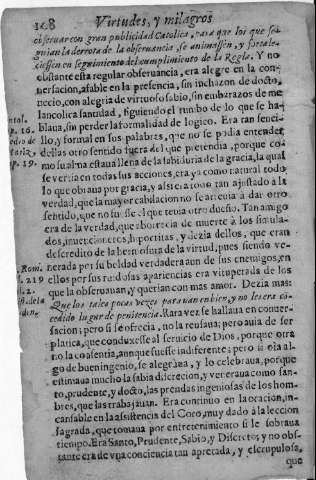 168 Virtudes, y milagros
obseruar con gran publicidad Catolica, para que los que se-
guian la derrota de la obseruancia, se animassen, y fortale-
ciessen en seguimiento del cumplimiento de la Regla. Y no
obstante esta regular obseruancia, era alegre en la con-
uersacion, afable en la presencia, sin inchazon de docto,
necio, con alegria de virtuoso sabio, sin embarazos de me-
lancolica santidad, siguiendo el rumbo de lo que se ha-
blaua, sin perder la formalidad de logico. Era tan senci-
llo, y formal en sus palabras, que no se podia entender
dellas otro sentido fuera del que pretendia, porque co-
mo su alma estaua llena de la sabiduria de la gracia, la qual
se vertia en todas sus acciones, era ya como natural todo
lo que obraua por gracia, y assi era tan ajustado a la
verdad, que la mayor cabilacion no se atreuia a dar otro
sentido, que no fuesse el que tenia otro dueño. Tan amigo
era de la verdad, que aborrecia de muerte à los simula-
dos, hipocritas, y dezia dellos, que eran
descredito de la hermosura de la virtud, pues siendo ve-
nerada por su beldad verdadera aun de sus enemigos, en
ellos por sus ruidosas apariencias era vituperada de los
que la obseruauan, y querian con mas amor. Dezia mas:
Que los tales pocas vezes parauan en bien, y no les era co-
cedido lugar de penitencia. Rara vez se hallaua en conuer-
sacion; pero si se ofrecia, no la reusaua; pero auia de ser
platica, que conduxesse al seruicio de Dios, porque otra
no la consentia, aunque fuesse indiferente; pero si oia al-
go de buen ingenio, se alegraua, y lo celebraua, porque
estimaua mucho la sabia discrecion, y veneraua como san-
to, prudente, y docto, las prendas ingeniosas de los hom-
bres, que las trabajauan. Era continuo en la oracion, in-
cansable en la assistencia del Coro, muy dado à la leccion
sagrada, que tomaua por entretenimiento si le sobraua
tiempo. Era Santo, Prudente, Sabio, y Discreto; y no obs-
tante era de vna conciencia tan apretada, y escrupulosa,
que
p. 16.
p. 19.
Rom.
219